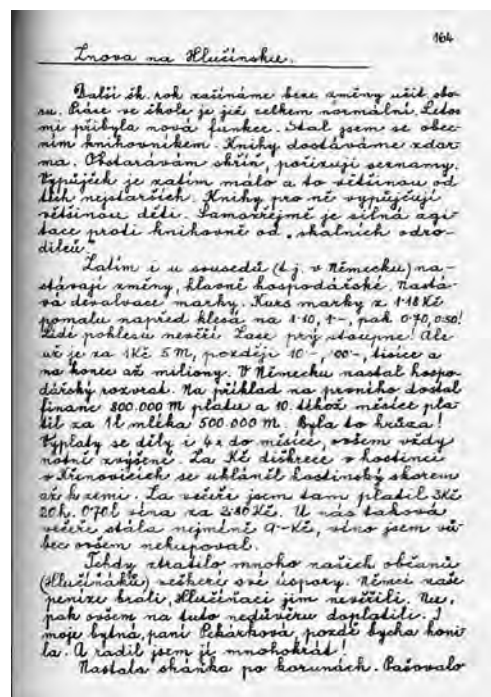 164
Znova na Hlučínsku.
Další šk. rok začínáme beze změny učit. sbo-
ru. Práce ve škole je již celkem normální. Letos
mi přibyla nová funkce. Stal jsem se obec-
ním knihovníkem. Knihy dostáváme zdar-
ma. Obstarávám skříň, pořizuji seznamy.
Výpůjček je zatím málo a to většinou od
těch nejstarších. Knihy pro ně vypůjčují
většinou děti. Samozřejmě je silná agi-
tace proti knihovně od „skalních odro-
dilců."
Zatím i u sousedů (t.j. v Německu) na-
stávají změny, hlavně hospodářské. Nastá-
vá devalvace marky. Kurs marky z 1·18 Kč
pomalu napřed klesá na 1·10, 1·-, pak 0·70, 0·50!
Lidé poklesu nevěří. Zase prý stoupne! Ale
už je za 1Kč 5 M, později 10·-, 100·-, tisíce a
na konec až miliony. V Německu nastal hospo-
dářský rozvrat. Na příklad na prvního dostal
financ 800.000 M platu a 10. téhož měsíce pla-
til za 1 l mléka 500.000 M. Byla to hrůza!
Výplaty se díly i 4x do měsíce, ovšem vždy
notně zvýšené. Za Kč diškrece v hostinci
v Křenovicích se ukláněl hostinský skorem
až k zemi. Za večeři jsem tam platil 3Kč
20h. 0·70 l vína za 2·80 Kč. U nás taková
večeře stála nejméně 9·-Kč, víno jsem vů-
bec ovšem nekupoval.
Tehdy ztratilo mnoho našich občanů
(Hlučíňáků) veškeré své úspory. Němci naše
peníze brali, Hlučíňáci jim nevěřili. Nu,
pak ovšem na tuto nedůvěru doplatili. I
moje bytná, paní Pekárková, pozdě bycha honi-
la. A radil jsem jí mnohokrát!
Nastala sháňka po korunách. Pašovalo